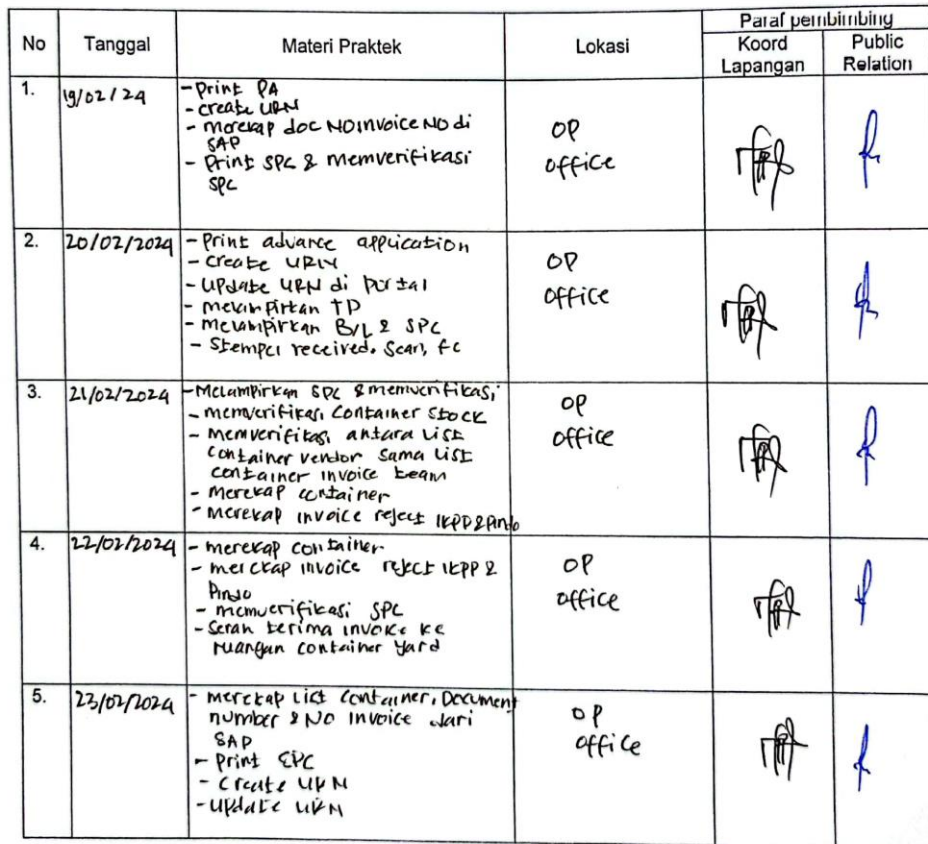 No Tanggal Materi Praktek Lokasi Paraf pembimbing
Koord Lapangan Public Relation
1. 19/02/24
- Print PA
- create URN
- merekap doc NO invoice NO di
SAP
- Print SPC & memverifikasi
SPC
OP
office
2. 20/02/2024
- Print advance application
- Create URN
- Update URN di Portal
- melampirkan TD
- melampirkan B/L & SPC
- Stempel received, Scan, fc
OP
office
3. 21/02/2024
- Melampirkan SPC & memverifikasi
- memverifikasi Container Stock
- memverifikasi antara List
Container vendor sama List
container invoice team
- merekap container
- merekap invoice reject IKPP & Pindo
OP
office
4. 22/02/2024
- merekap container
- merekap invoice reject IKPP &
Pindo
- memverifikasi SPC
- Serah terima invoice ke
ruangan container yard
OP
office
5. 23/02/2024
- merekap List Container, Document
number & NO invoice dari
SAP
- Print SPC
- Create URN
- update URN
OP
office